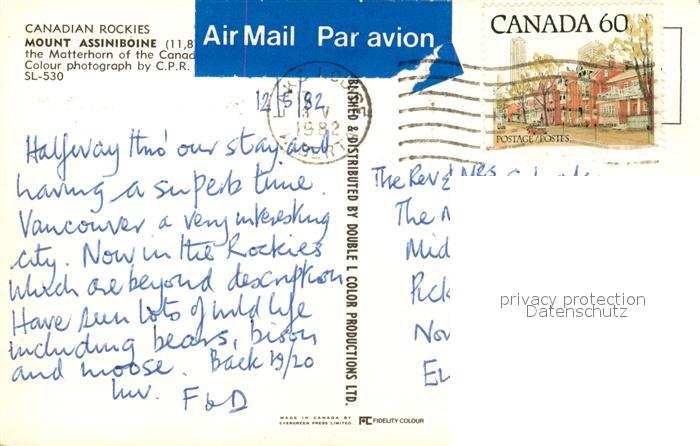 CANADIAN ROCKIES
MOUNT ASSINIBOINE (11,8
the Matterhorn of the Canad
Colour photograph by C.P.R.
SL-530
Air Mail Par avion
CANADA 60
POSTAGE/POSTES
12/5/82
1982
ALBERTA
Halfway thro' our stay and
having a superb time.
Vancouver a very interesting
city. Now in the Rockies
which are beyond description
Have seen lots of wild life
including bears, bison
and moose. Back 19/20
luv. F & D
PUBLISHED & DISTRIBUTED BY DOUBLE L COLOR PRODUCTIONS LTD.
The Rev & Mrs
The
Mid
Nov
privacy protection
Datenschutz
MADE IN CANADA BY
EVERGREEN PRESS LIMITED
FC FIDELITY COLOUR